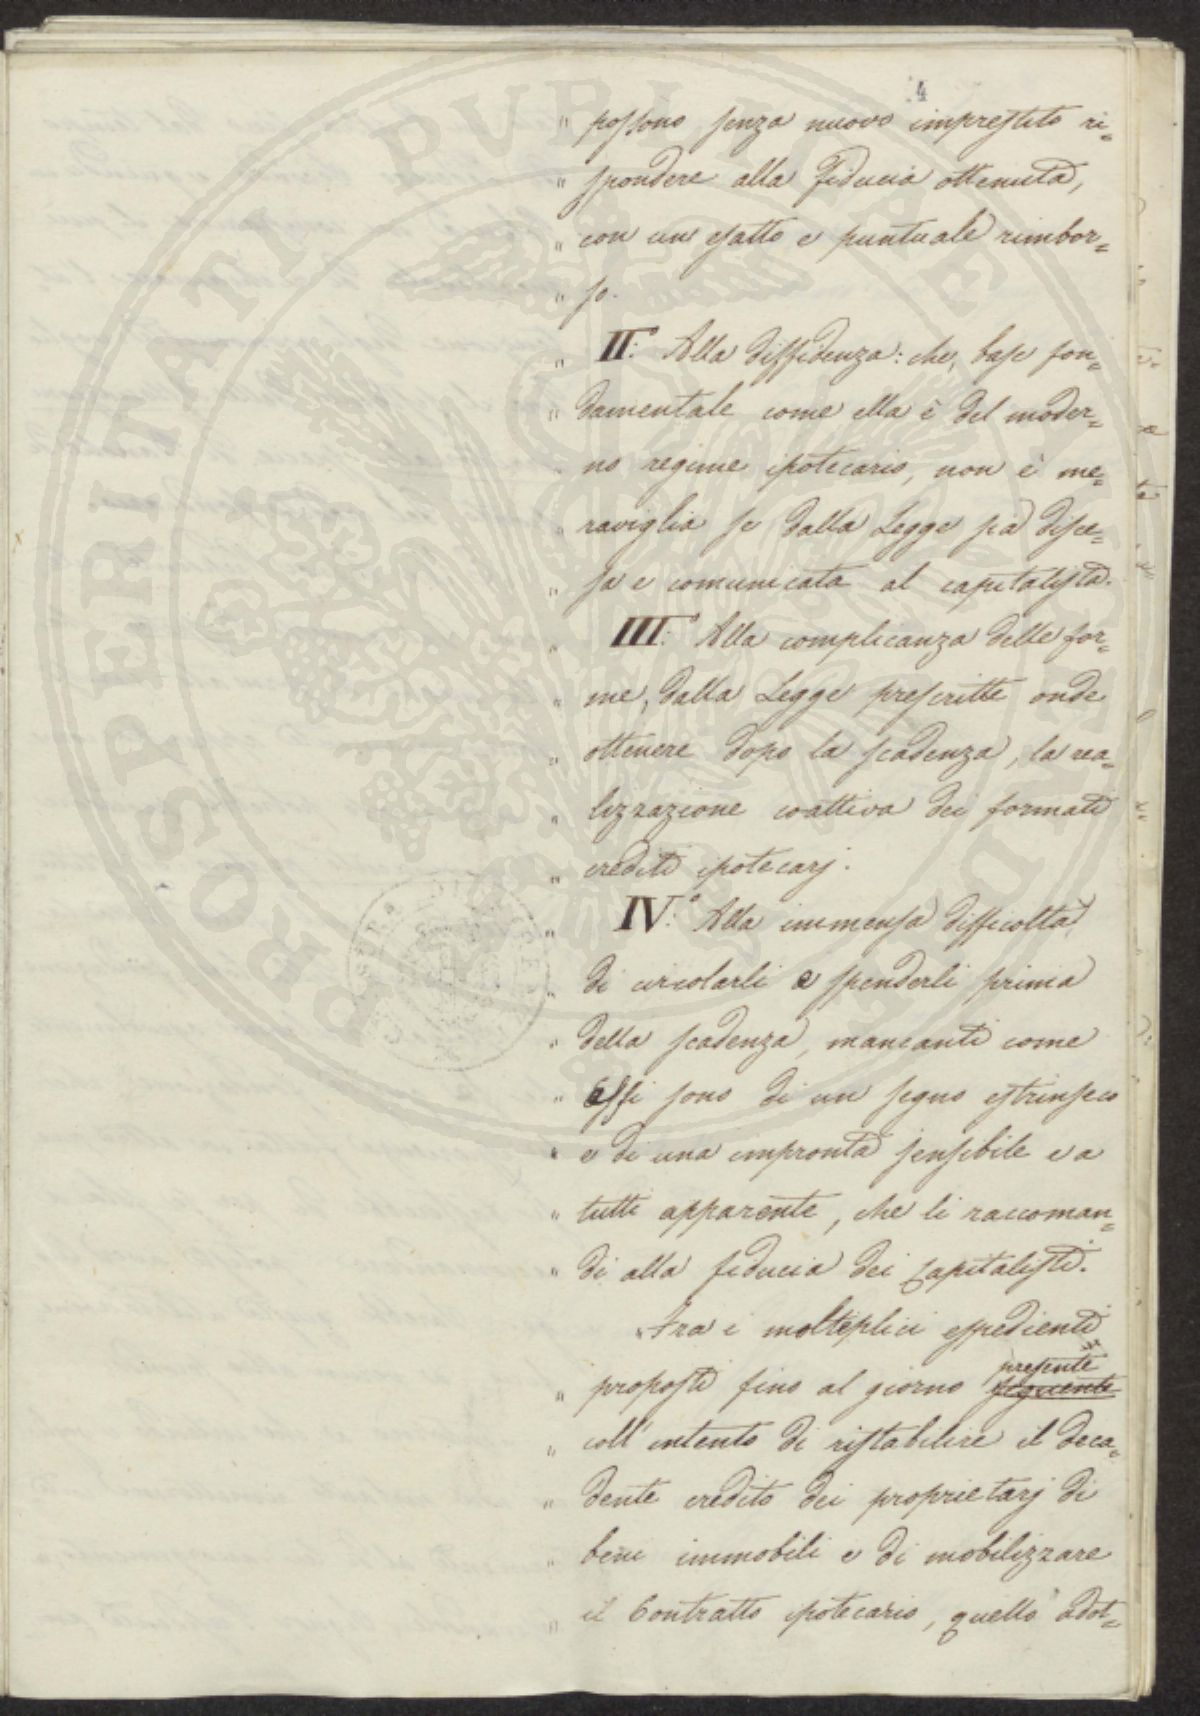 4
" possono senza nuovo imprestito ri=
" spondere alla fiducia ottenuta,
" con un esatto e puntuale rimbor=
" so.
" II.° Alla diffidenza: che, base fon=
" damentale come ella è del moder=
" no regime ipotecario, non è me=
" raviglia se dalla Legge sia disce=
" sa e comunicata al capitalista.
" III.° Alla complicanza delle for=
" me, dalla Legge prescritte onde
" ottenere dopo la scadenza, la rea=
" lizzazione coattiva dei formati
" crediti ipotecarj.
" IV.° Alla immensa difficoltà
" di circolarli e spenderli prima
" della scadenza, mancanti come
" essi sono di un segno estrinseco
" e di una impronta sensibile e a
" tutti apparente, che li raccoman=
" di alla fiducia dei Capitalisti.
" Fra i molteplici espedienti
presente
" proposti fino al giorno seguente
" coll'intento di ristabilire il deca=
" dente credito dei proprietarj di
" beni immobili e di mobilizzare
" il Contratto ipotecario, quello adot=
PROSPERITATI PUBLICAE